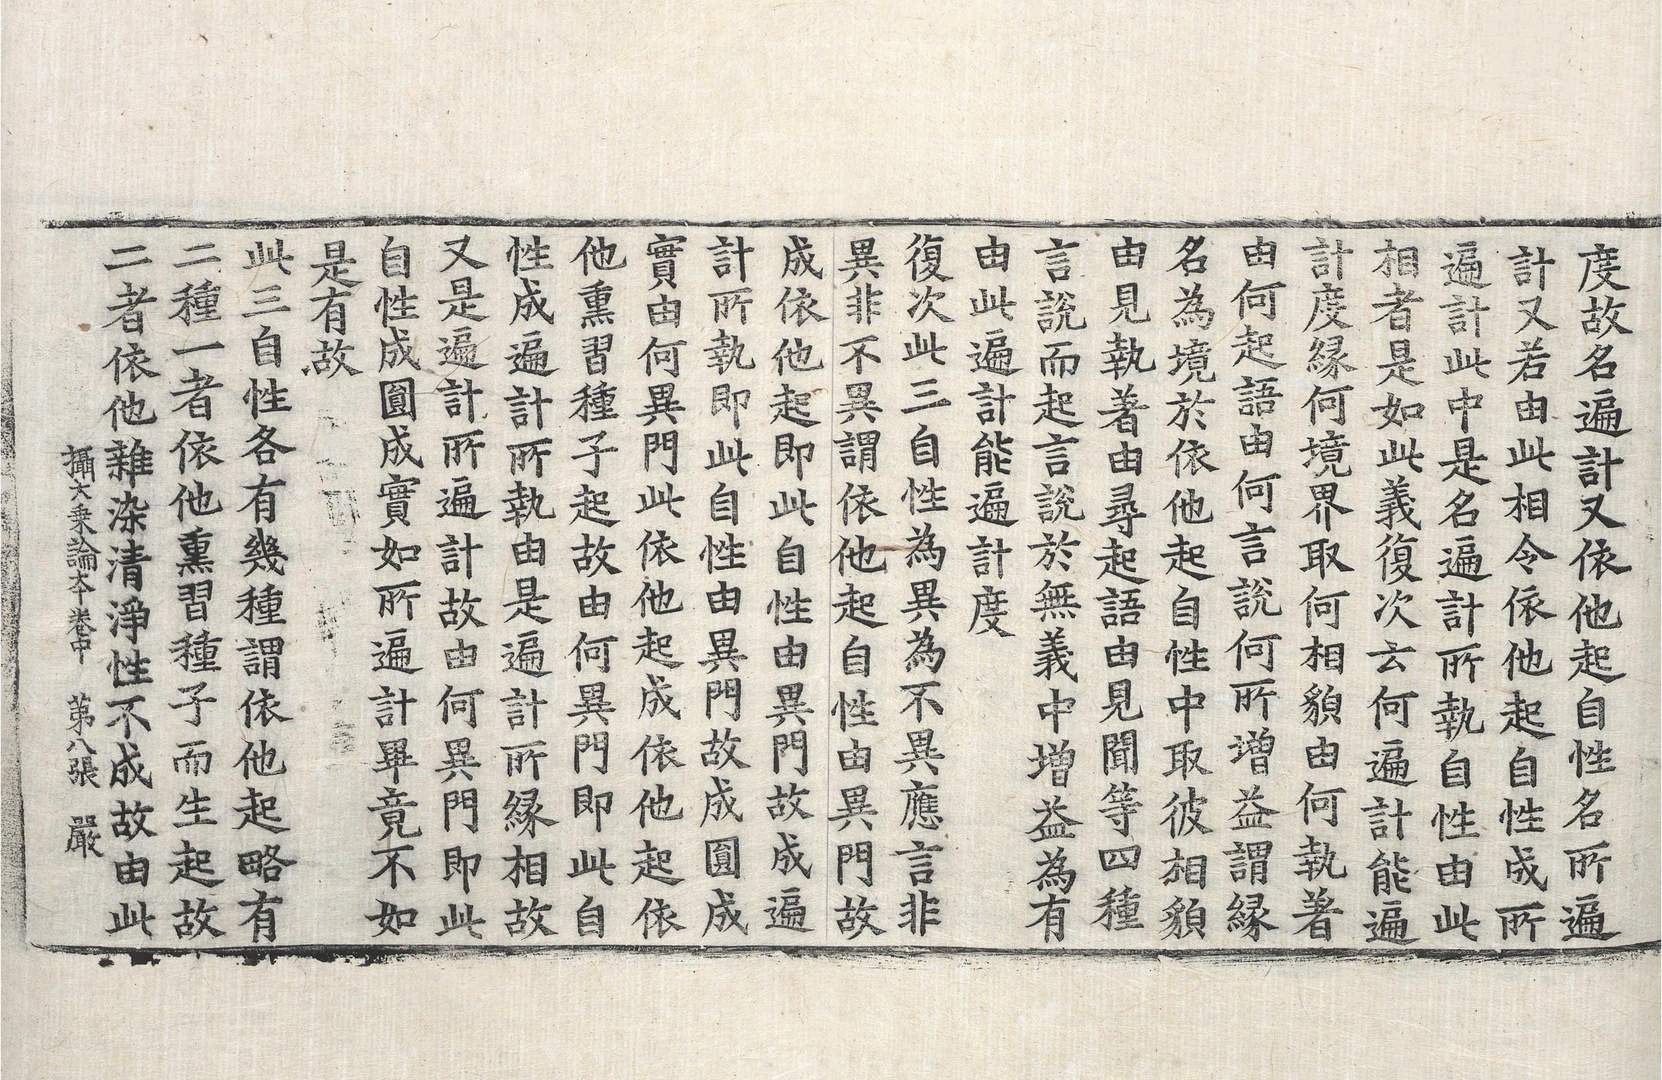 度故名遍計又依他起自性名所遍
計又若由此相令依他起自性成所
遍計此中是名遍計所執自性由此
相者是如此義復次云何遍計能遍
計度緣何境界取何相貌由何執著
由何起語由何言說何所增益謂緣
名為境於依他起自性中取彼相貌
由見執著由尋起語由見聞等四種
言說而起言說於無義中增益為有
由此遍計能遍計度
復次此三自性為異為不異應言非
異非不異謂依他起自性由異門故
成依他起即此自性由異門故成遍
計所執即此自性由異門故成圓成
實由何異門此依他起成依他起依
他熏習種子起故由何異門即此自
性成遍計所執由是遍計所緣相故
又是遍計所遍計故由何異門即此
自性成圓成實如所遍計畢竟不如
是有故
此三自性各有幾種謂依他起略有
二種一者依他熏習種子而生起故
二者依他雜染清淨性不成故由此
攝大乘論本卷中 第八張 嚴